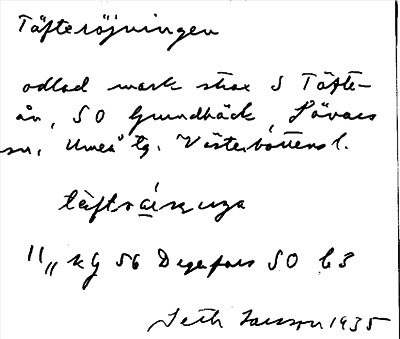 Täfteröjningen
odlad mark strax S Täfte-
ån, SO Grundbäck, Sävars
sn, Umeå tg. Västerbottens l.
11,, kg 56 Degerfors SO b3
Seth Larsson 1935